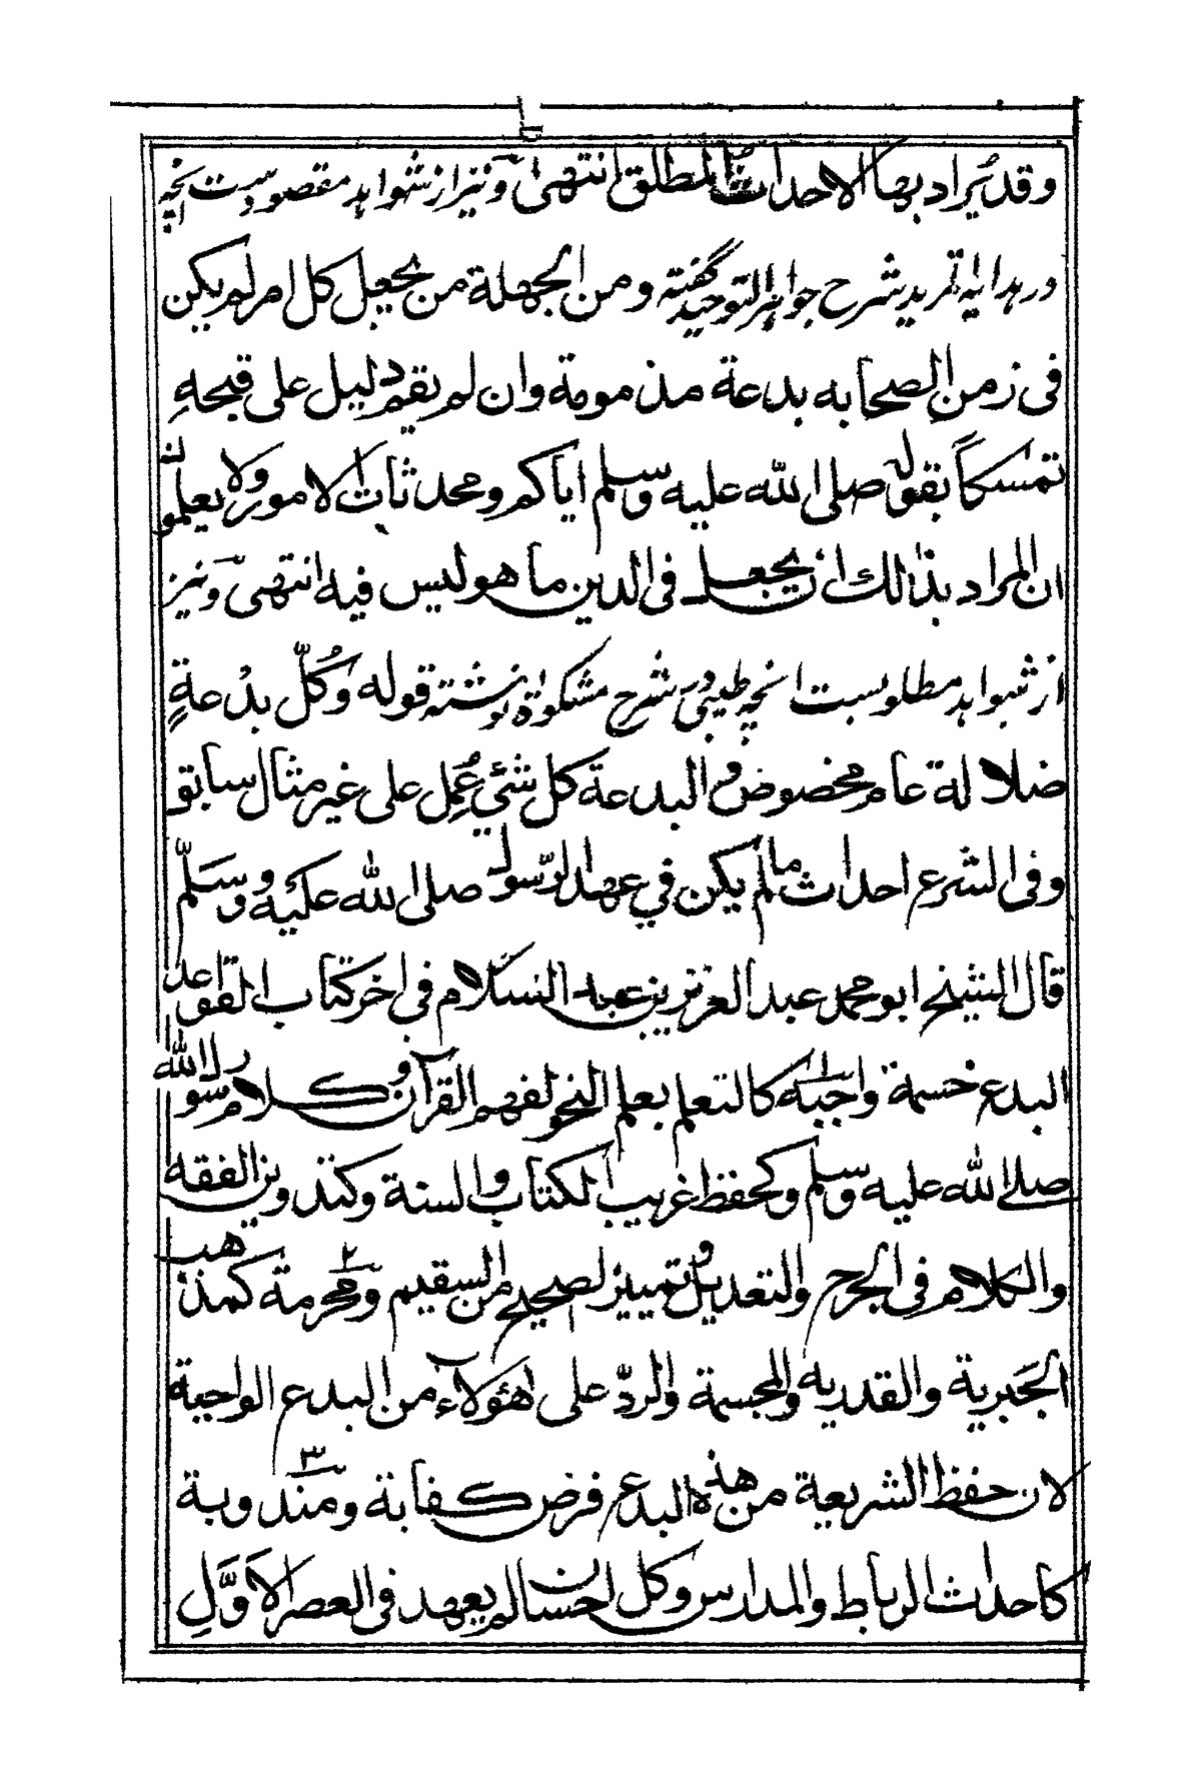 وقد يُراد بها الاحداث المطلق انتهىٰ ونيز از شواهد مقصودست انچه
در هداية المريد شرح جواهر التوحيد گفته ومن الجهلة من يجعل كل امر لم يكن
فى زمن الصحابه بدعة مذمومة وان لم يقم دليل على قبحهِ
تمسكاً بقوله صلى الله عليه وسلم اياكم ومحدثات الامور ولا يعلمون
ان المراد بذالك ان يجعل فى الدين ما هو ليس فيه انتهىٰ ونيز
از شواهد مطلوبست انچه طيبى در شرح مشكوٰة نوشته قوله وَكُلّ بدْعةٍ
ضلالة عام مخصوص والبدعة كل شئيٍ عُمِل على غير مثال سابق
وفى الشرع احداث مالم يكن في عهد الرّسول صلى الله عليه وسَلّم
قال الشيخ ابو محمد عبد العزيز بن عبد السّلام فى اخر كتاب القواعد
البدع خمسة واجبة كالتعلم بعلم النحو لفهم القرآن وكلام رسول الله
صلى الله عليه وسلم وكحفظ غريب الكتاب والسنة وكتدوين الفقه
والكلام فى الجرح والتعديل وتمييز الصحيح من السقيم ٢ ومحرمة كمذهب
الجَبرية والقدريه والمجسمة والردّ على هٰؤلاء من البدع الواجبة
لان حفظ الشريعة من هذه البدع فرض كفاية ٣ ومندوبة
كاحداث الرباط والمدارس وكل احسان لم يعهد فى العصر الاَوّلِ